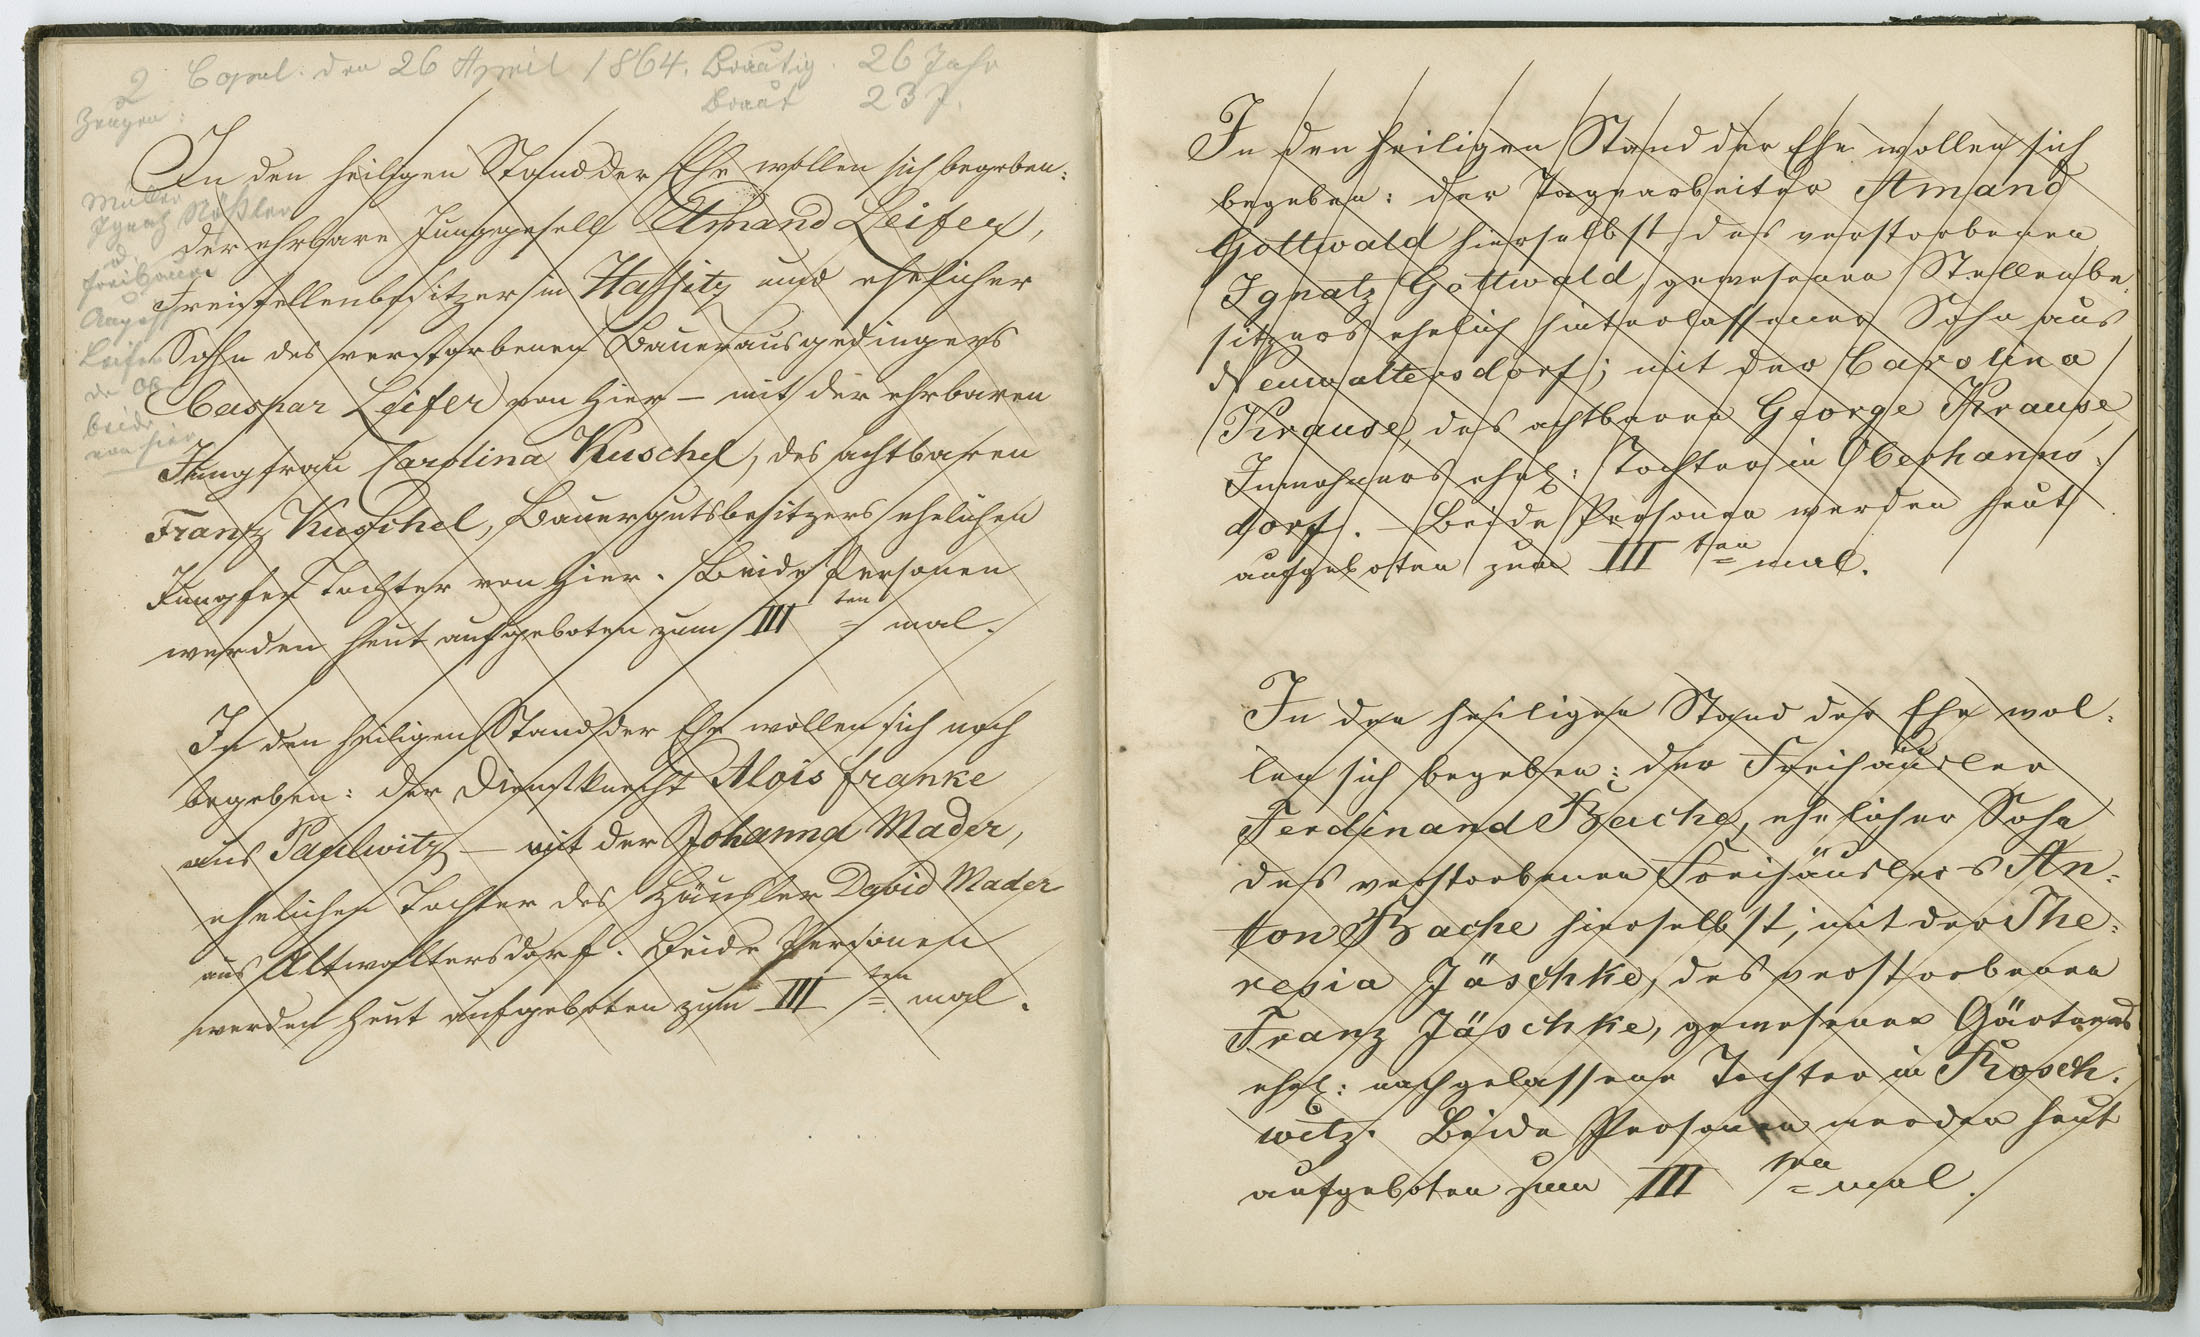 2 Copul. den 26 April 1864. Bräutig. 26 Jahr
Braut 23 J.
Zeugen:
Müller
Ignatz Rößler
u.
Freibauer
August
Leifer
beide
von hier
In den heiligen Stand der Ehe wollen sich begeben:
der ehrbare Junggesell Amand Leifer,
Freistellenbesitzer in Hassitz und ehelicher
Sohn des verstorbenen Bauerausgedingers
Caspar Leifer von hier – mit der ehrbaren
Jungfrau Carolina Kuschel, des achtbaren
Franz Kuschel, Bauergutsbesitzers ehelichen
Jungfer Tochter von hier. Beide Personen
werden heut aufgeboten zum III ten = mal.
In den heiligen Stand der Ehe wollen sich noch
begeben: der Dienstknecht Alois Franke
aus Paulwitz – mit der Johanna Mader,
ehelichen Tochter des Häusler David Mader
aus Altwaltersdorf. Beide Personen
werden heut aufgeboten zum III ten = mal.
In den heiligen Stand der Ehe wollen sich
begeben: der Tagearbeiter Amand
Gottwald hierselbst, des verstorbenen
Ignatz Gottwald, gewesenen Stellenbe-
sitzers ehelich hinterlassener Sohn aus
Neuwaltersdorf; mit der Carolina
Krause, des achtbaren George Krause,
Inwohners ehel: Tochter in Oberhanns-
dorf. – Beide Personen werden heut
aufgeboten zum III ten = mal.
In den heiligen Stand der Ehe wol-
len sich begeben: der Freihäusler
Ferdinand Bache, ehelicher Sohn
des verstorbenen Freihäuslers An-
ton Bache hierselbst; mit der The-
resia Jäschke, des verstorbenen
Franz Jäschke, gewesenen Gärtners
ehel: nachgelassene Tochter in Rosch-
witz. Beide Personen werden heut
aufgeboten zum III ten = mal.